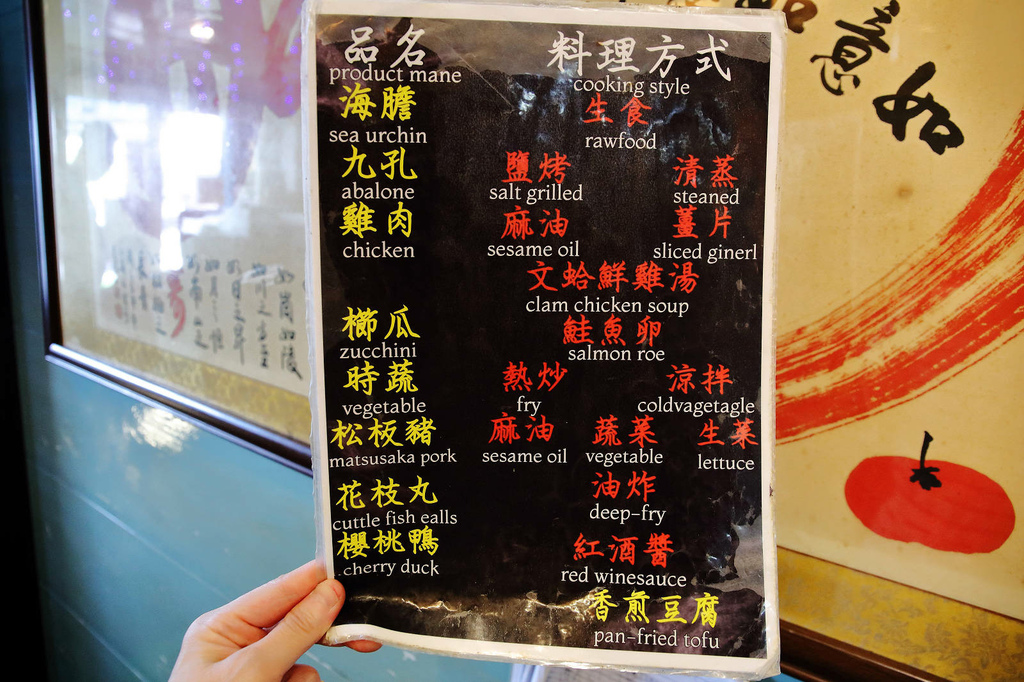 品名 料理方式
product mane cooking style
海膽 生食
sea urchin rawfood
九孔 鹽烤 清蒸
abalone salt grilled steaned
雞肉 麻油 薑片
chicken sesame oil sliced ginerl
文蛤鮮雞湯
clam chicken soup
櫛瓜 鮭魚卵
zucchini salmon roe
時蔬 熱炒 涼拌
vegetable fry coldvagetagle
松板豬 麻油 蔬菜 生菜
matsusaka pork sesame oil vegetable lettuce
花枝丸 油炸
cuttle fish ealls deep-fry
櫻桃鴨 紅酒醬
cherry duck red winesauce
香煎豆腐
pan-fried tofu
意
如